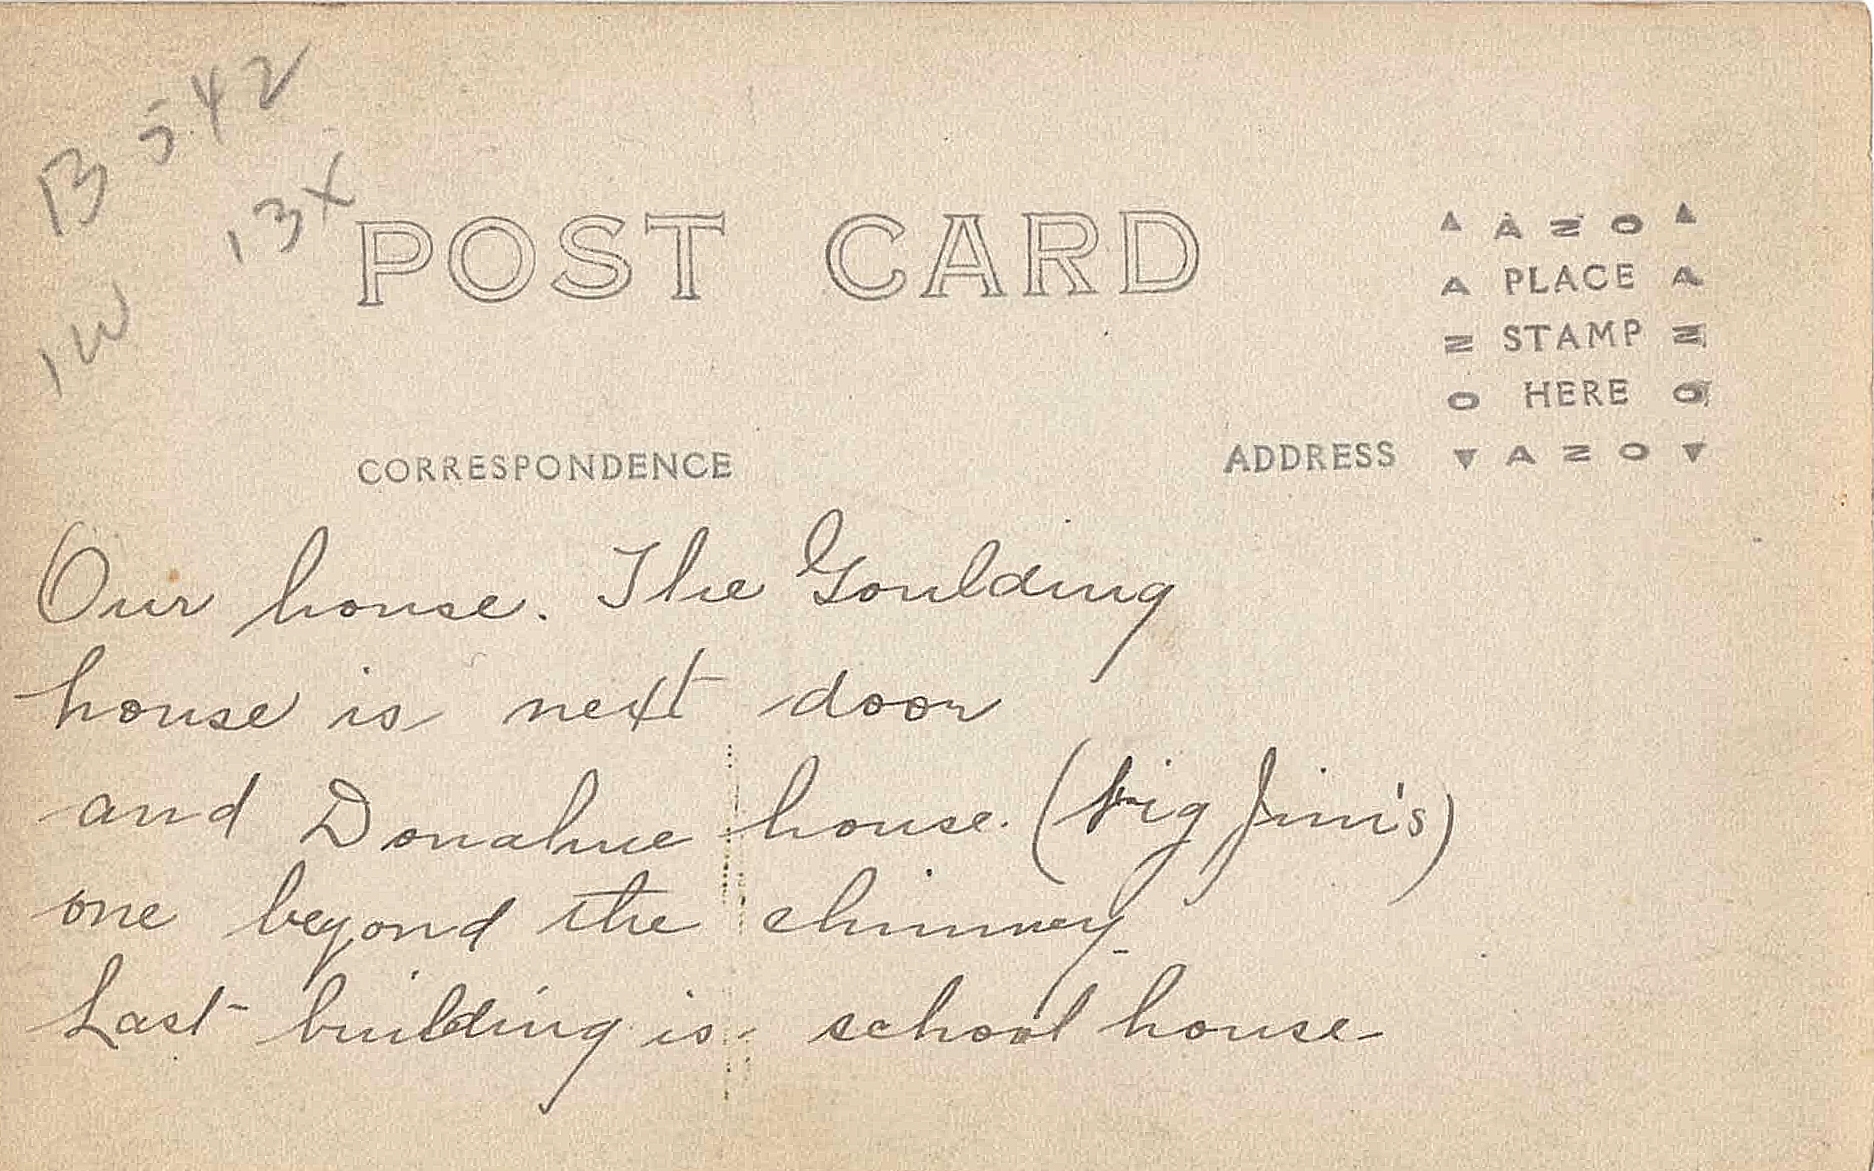 B 542
13X
1W
POST CARD
▲ AZO ▲
A PLACE A
Z STAMP Z
O HERE O
▼ AZO ▼
CORRESPONDENCE
ADDRESS
Our house. The Goulding
house is next door
and Donahue house. (big Jim's)
one beyond the chimney.
Last building is school house